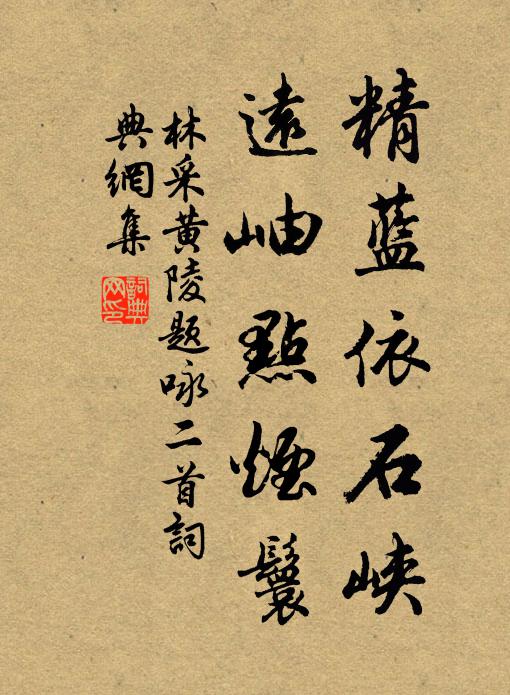 精藍依石峽
遠岫點煙鬟
林采黄陵题咏二首詞
典網集
詞典網印